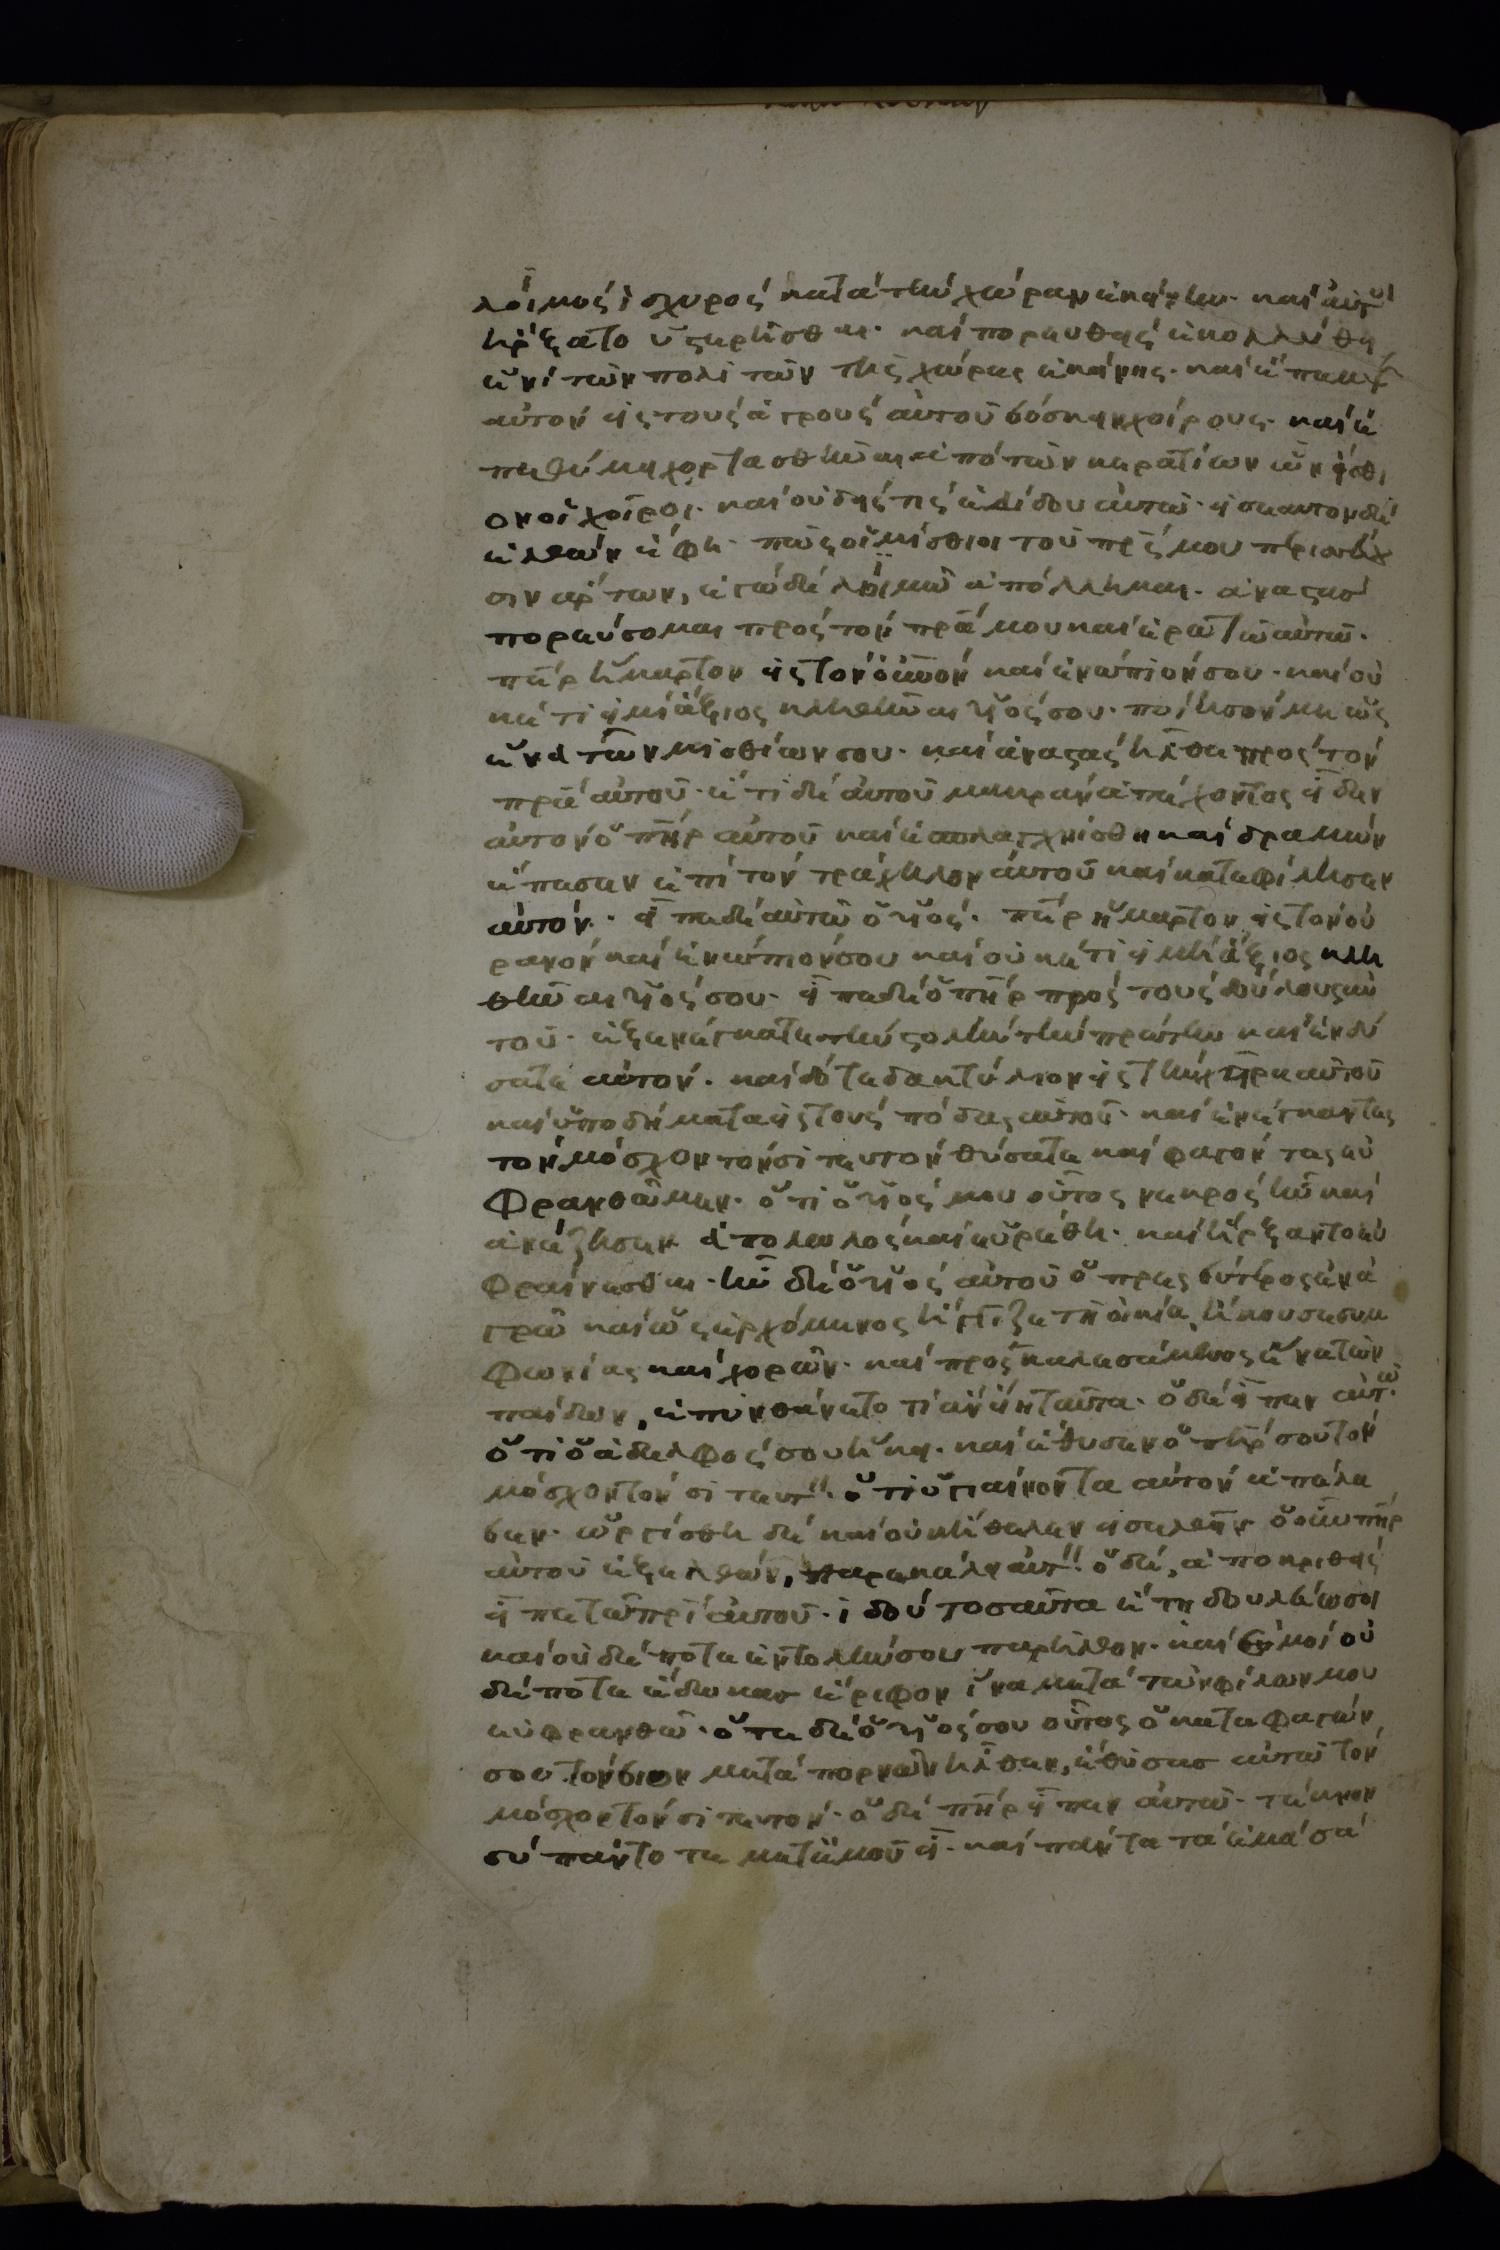 λοιμὸς ἰσχυρὸς κατὰ τὴν χώραν ἐκείνην· καὶ αὐτὸς
ἤρξατο ὑστερεῖσθαι· καὶ πορευθεὶς ἐκολλήθη
ἑνὶ τῶν πολιτῶν τῆς χώρας ἐκείνης· καὶ ἔπεμψεν
αὐτὸν εἰς τοὺς ἀγροὺς αὐτοῦ βόσκειν χοίρους· καὶ ἐ
πεθύμει χορτασθῆναι ἀπὸ τῶν κερατίων ὧν ἤσθι
ον οἱ χοῖροι· καὶ οὐδεὶς ἐδίδου αὐτῷ· εἰς ἑαυτὸν δὲ
ἐλθὼν ἔφη· πόσοι μίσθιοι τοῦ πρς μου περισσεύου
σιν ἄρτων, ἐγὼ δὲ λοιμῷ ἀπόλλυμαι· ἀναστὰς
πορεύσομαι πρὸς τὸν πρα μου καὶ ἐρῶ αὐτῷ·
περ ἥμαρτον εἰς τὸν οὐνὸν καὶ ἐνώπιόν σου· καὶ οὐ
κέτι εἰμὶ ἄξιος κληθῆναι υἱός σου· ποίησόν με ὡς
ἕνα τῶν μισθίων σου· καὶ ἀναστὰς ἦλθε πρὸς τὸν
πρα αὐτοῦ· ἔτι δὲ αὐτοῦ μακρὰν ἀπέχοντος εἶδεν
αὐτὸν ὁ πηρ αὐτοῦ καὶ ἐσπλαγχνίσθη καὶ δραμὼν
ἔπεσεν ἐπὶ τὸν τράχηλον αὐτοῦ καὶ κατεφίλησεν
αὐτόν· εἶπε δὲ αὐτῷ ὁ υἱός· περ ἥμαρτον εἰς τὸν οὐ
ρανὸν καὶ ἐνώπιόν σου καὶ οὐκέτι εἰμὶ ἄξιος κλη
θῆναι υἱός σου· εἶπε δὲ ὁ πηρ πρὸς τοὺς δούλους αὐ
τοῦ· ἐξενέγκατε τὴν στολὴν τὴν πρώτην καὶ ἐνδύ
σατε αὐτόν· καὶ δότε δακτύλιον εἰς τὴν χεῖρα αὐτοῦ
καὶ ὑποδήματα εἰς τοὺς πόδας αὐτοῦ· καὶ ἐνέγκαντες
τὸν μόσχον τὸν σιτευτὸν θύσατε καὶ φαγόντες εὐ
φρανθῶμεν· ὅτι ὁ υἱός μου οὗτος νεκρὸς ἦν καὶ
ἀνέζησεν ἀπολωλὸς καὶ εὑρέθη· καὶ ἤρξαντο εὐ
φραίνεσθαι· ἦν δὲ ὁ υἱὸς αὐτοῦ ὁ πρεσβύτερος ἐν ἀ
γρῷ καὶ ὡς ἐρχόμενος ἤγγιζε τῇ οἰκίᾳ ἤκουσε συμ
φωνίας καὶ χορῶν· καὶ προσκαλεσάμενος ἕνα τῶν
παίδων, ἐπυνθάνετο τί ἂν εἴη ταῦτα· ὁ δὲ εἶπεν αὐτῷ·
ὅτι ὁ ἀδελφός σου ἥκει· καὶ ἔθυσεν ὁ πηρ σου τὸν
μόσχον τὸν σιτευτ· ὅτι ὑγιαίνοντα αὐτὸν ἀπέλα
βεν· ὠργίσθη δὲ καὶ οὐκ ἤθελεν εἰσελθεῖν ὁ οὖν πηρ
αὐτοῦ ἐξελθὼν, παρεκάλει αὐτ· ὁ δὲ, ἀποκριθεὶς
εἶπε τῷ πρι αὐτοῦ· ἰδοὺ τοσαῦτα ἔτη δουλεύω σοι
καὶ οὐδέποτε ἐντολήν σου παρῆλθον· καὶ ἐμοὶ οὐ
δέποτε ἔδωκας ἔριφον ἵνα μετὰ τῶν φίλων μου
εὐφρανθῶ· ὅτε δὲ ὁ υἱός σου οὗτος ὁ καταφαγών
σου τὸν βίον μετὰ πορνῶν ἦλθεν, ἔθυσας αὐτῷ τὸν
μόσχον τὸν σιτευτόν· ὁ δὲ πηρ εἶπεν αὐτῷ· τέκνον
σὺ πάντοτε μετ' ἐμοῦ εἶ· καὶ πάντα τὰ ἐμὰ σὰ